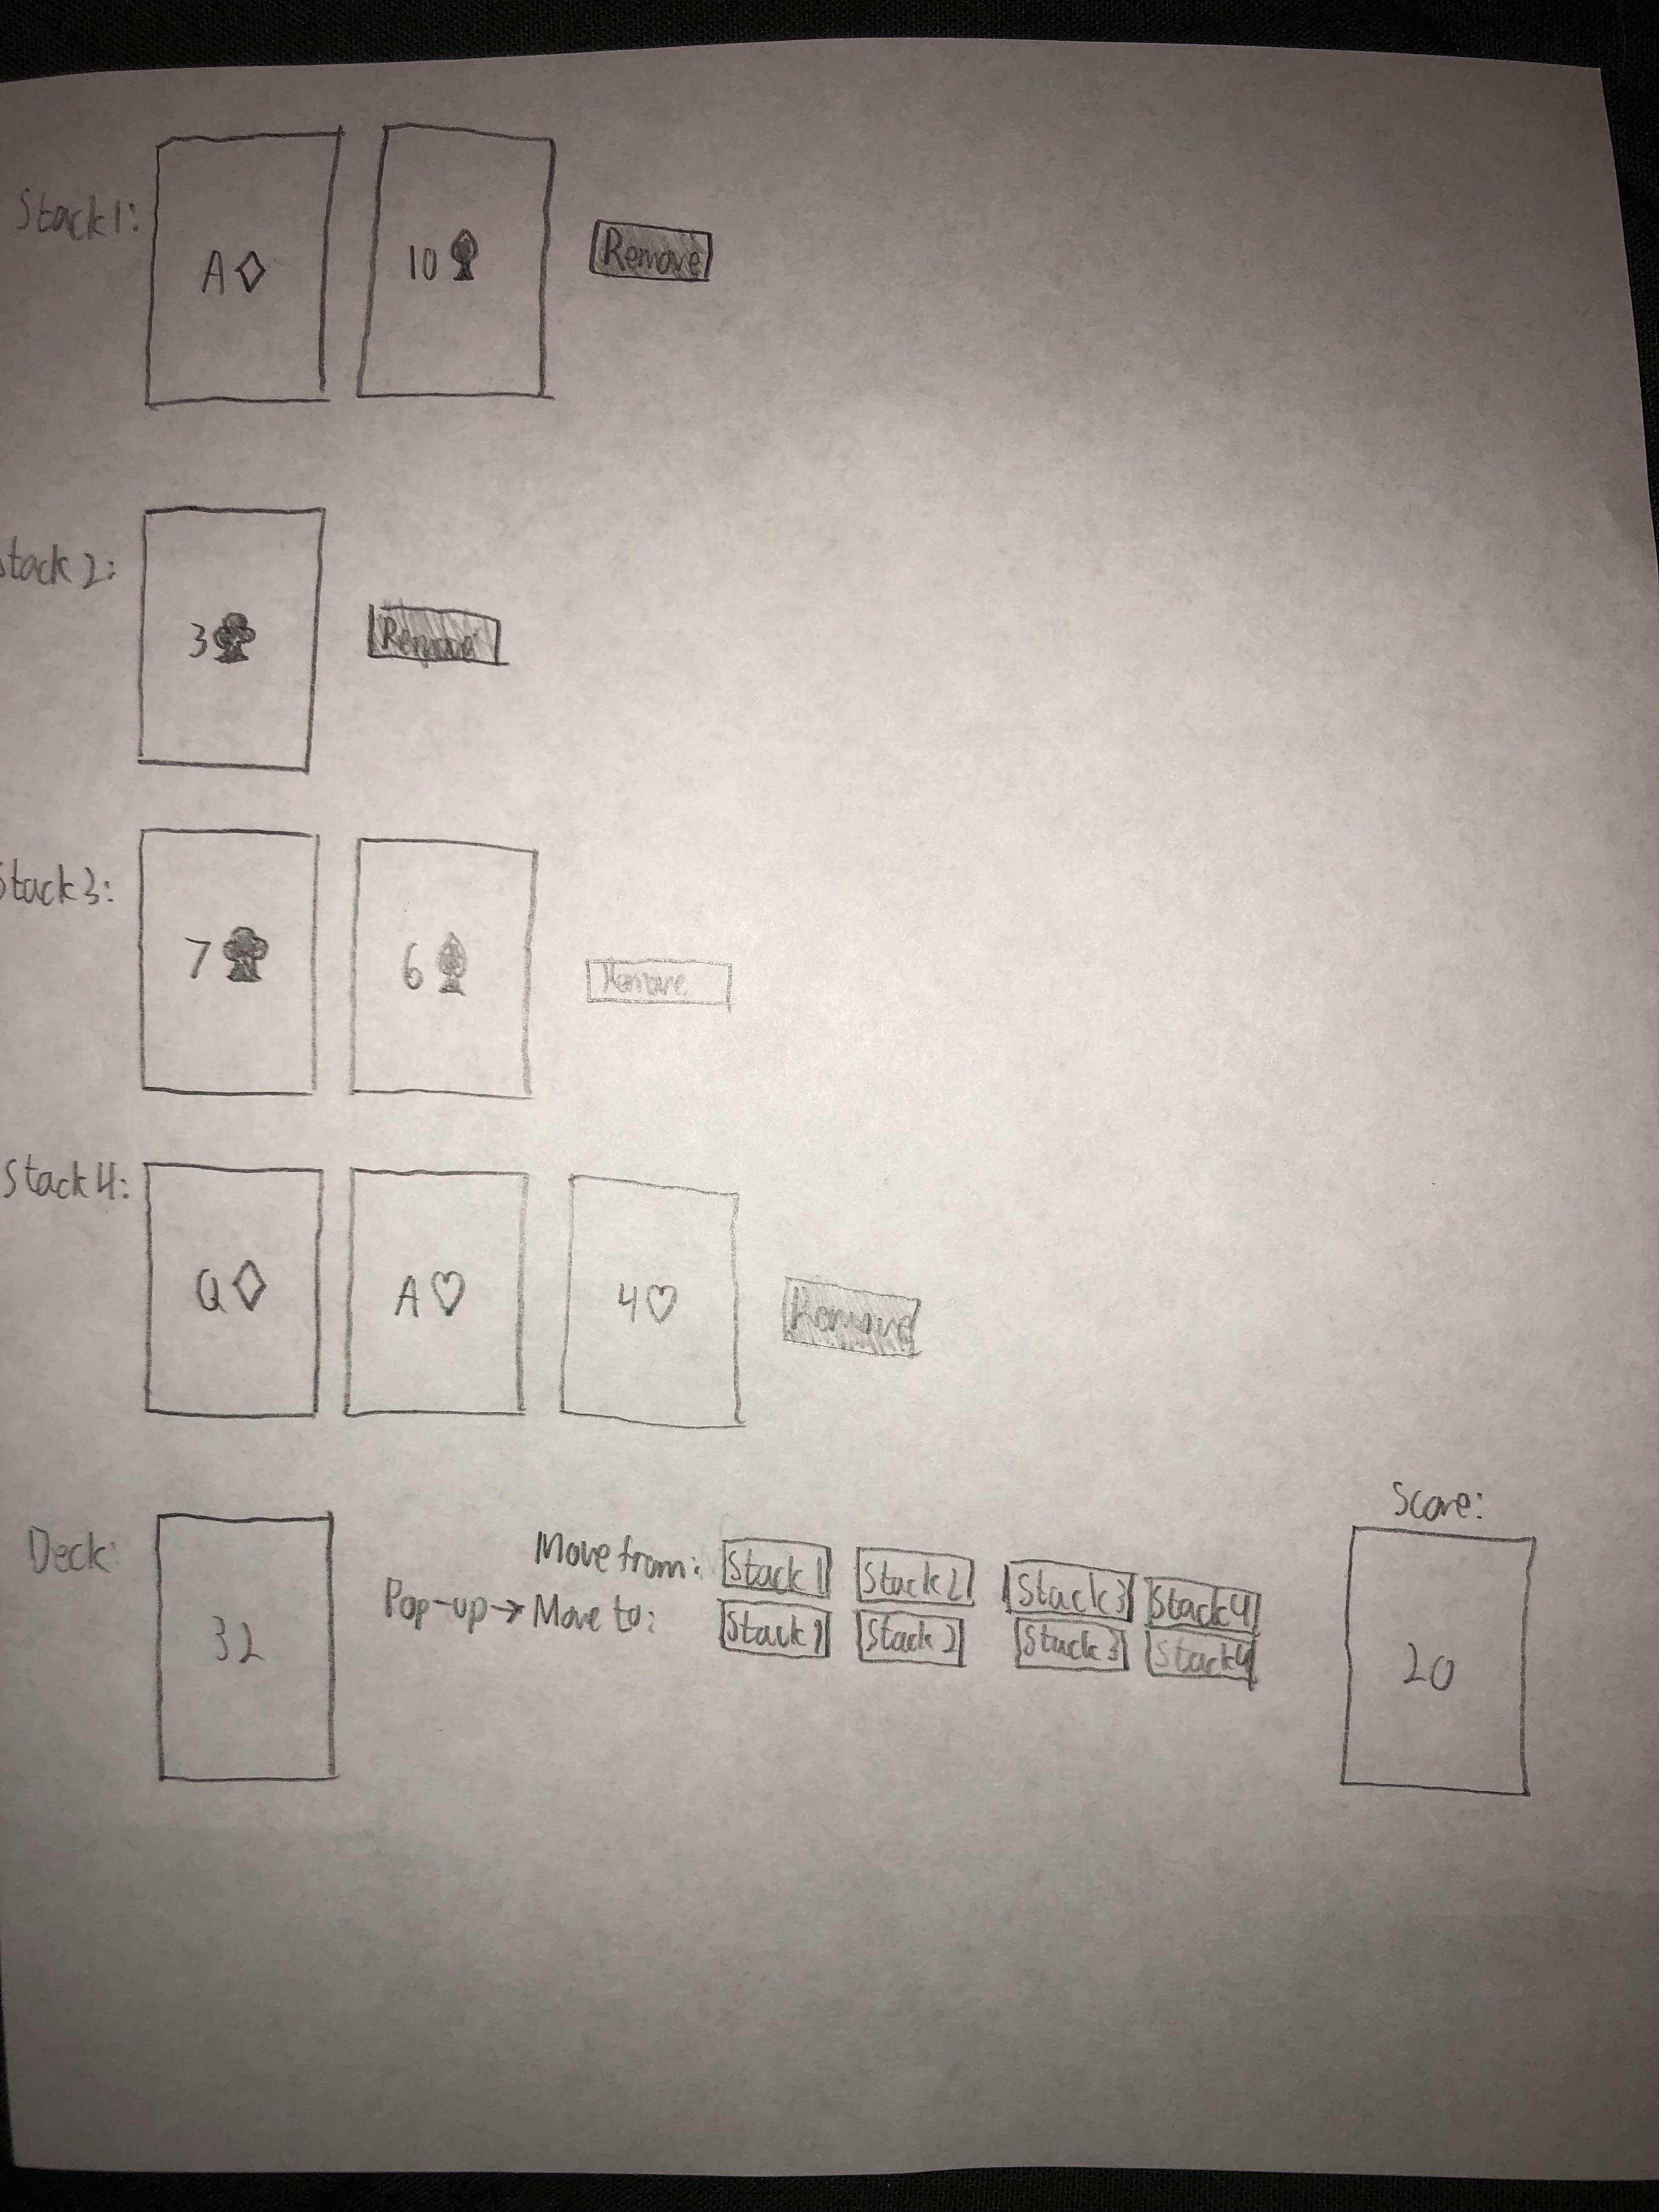 Stack 1:
A♢ 10♠ Remove
Stack 2:
3♣ Remove
Stack 3:
7♣ 6♠ Remove
Stack 4:
Q♢ A♡ 4♡ Remove
Score:
Deck:
Move from: Stack 1 Stack 2 Stack 3 Stack 4
Pop-up→ Move to: Stack 1 Stack 2 Stack 3 Stack 4
32
20